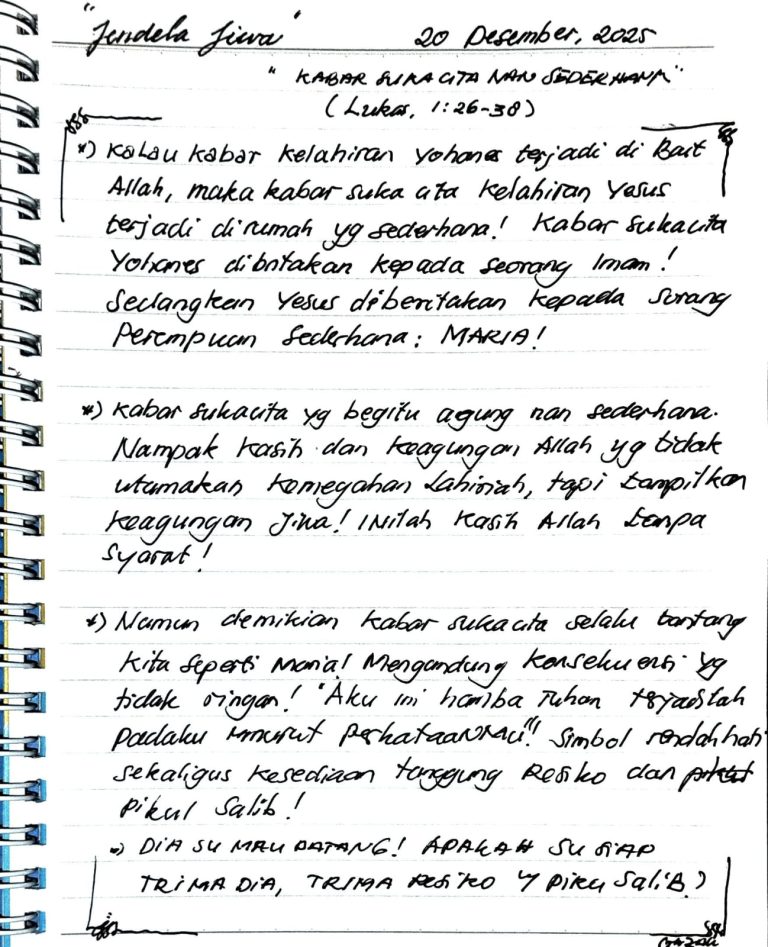 "Jendela Jiwa" 20 Desember, 2025
"KABAR SUKACITA NAN SEDERHANA"
(Lukas, 1:26-38)
*) Kalau kabar kelahiran Yohanes terjadi di Bait
Allah, maka kabar suka cita kelahiran Yesus
terjadi dirumah yg sederhana! Kabar sukacita
Yohanes dibritakan kepada seorang Imam!
Sedangkan Yesus diberitakan kepada sorang
Perempuan Sederhana: MARIA!
*) Kabar sukacita yg begitu agung nan sederhana.
Nampak Kasih dan Keagungan Allah yg tidak
utamakan Kemegahan Lahiriah, tapi tampilkan
Keagungan Jiwa! INilah Kasih Allah tanpa
Syarat!
*) Namun demikian kabar sukacita selalu tantang
Kita seperti Maria! Mengandung Konsekuensi yg
tidak ringan! "Aku ini hamba Tuhan terjadilah
padaku menurut perkataanMu"! Simbol rendah hati
sekaligus kesediaan tanggung Resiko dan
Pikul Salib!
=) DIA SU MAU DATANG! APAKAH SU SIAP
TRIMA DIA, TRIMA RESIKO Y PIKU SALIB?